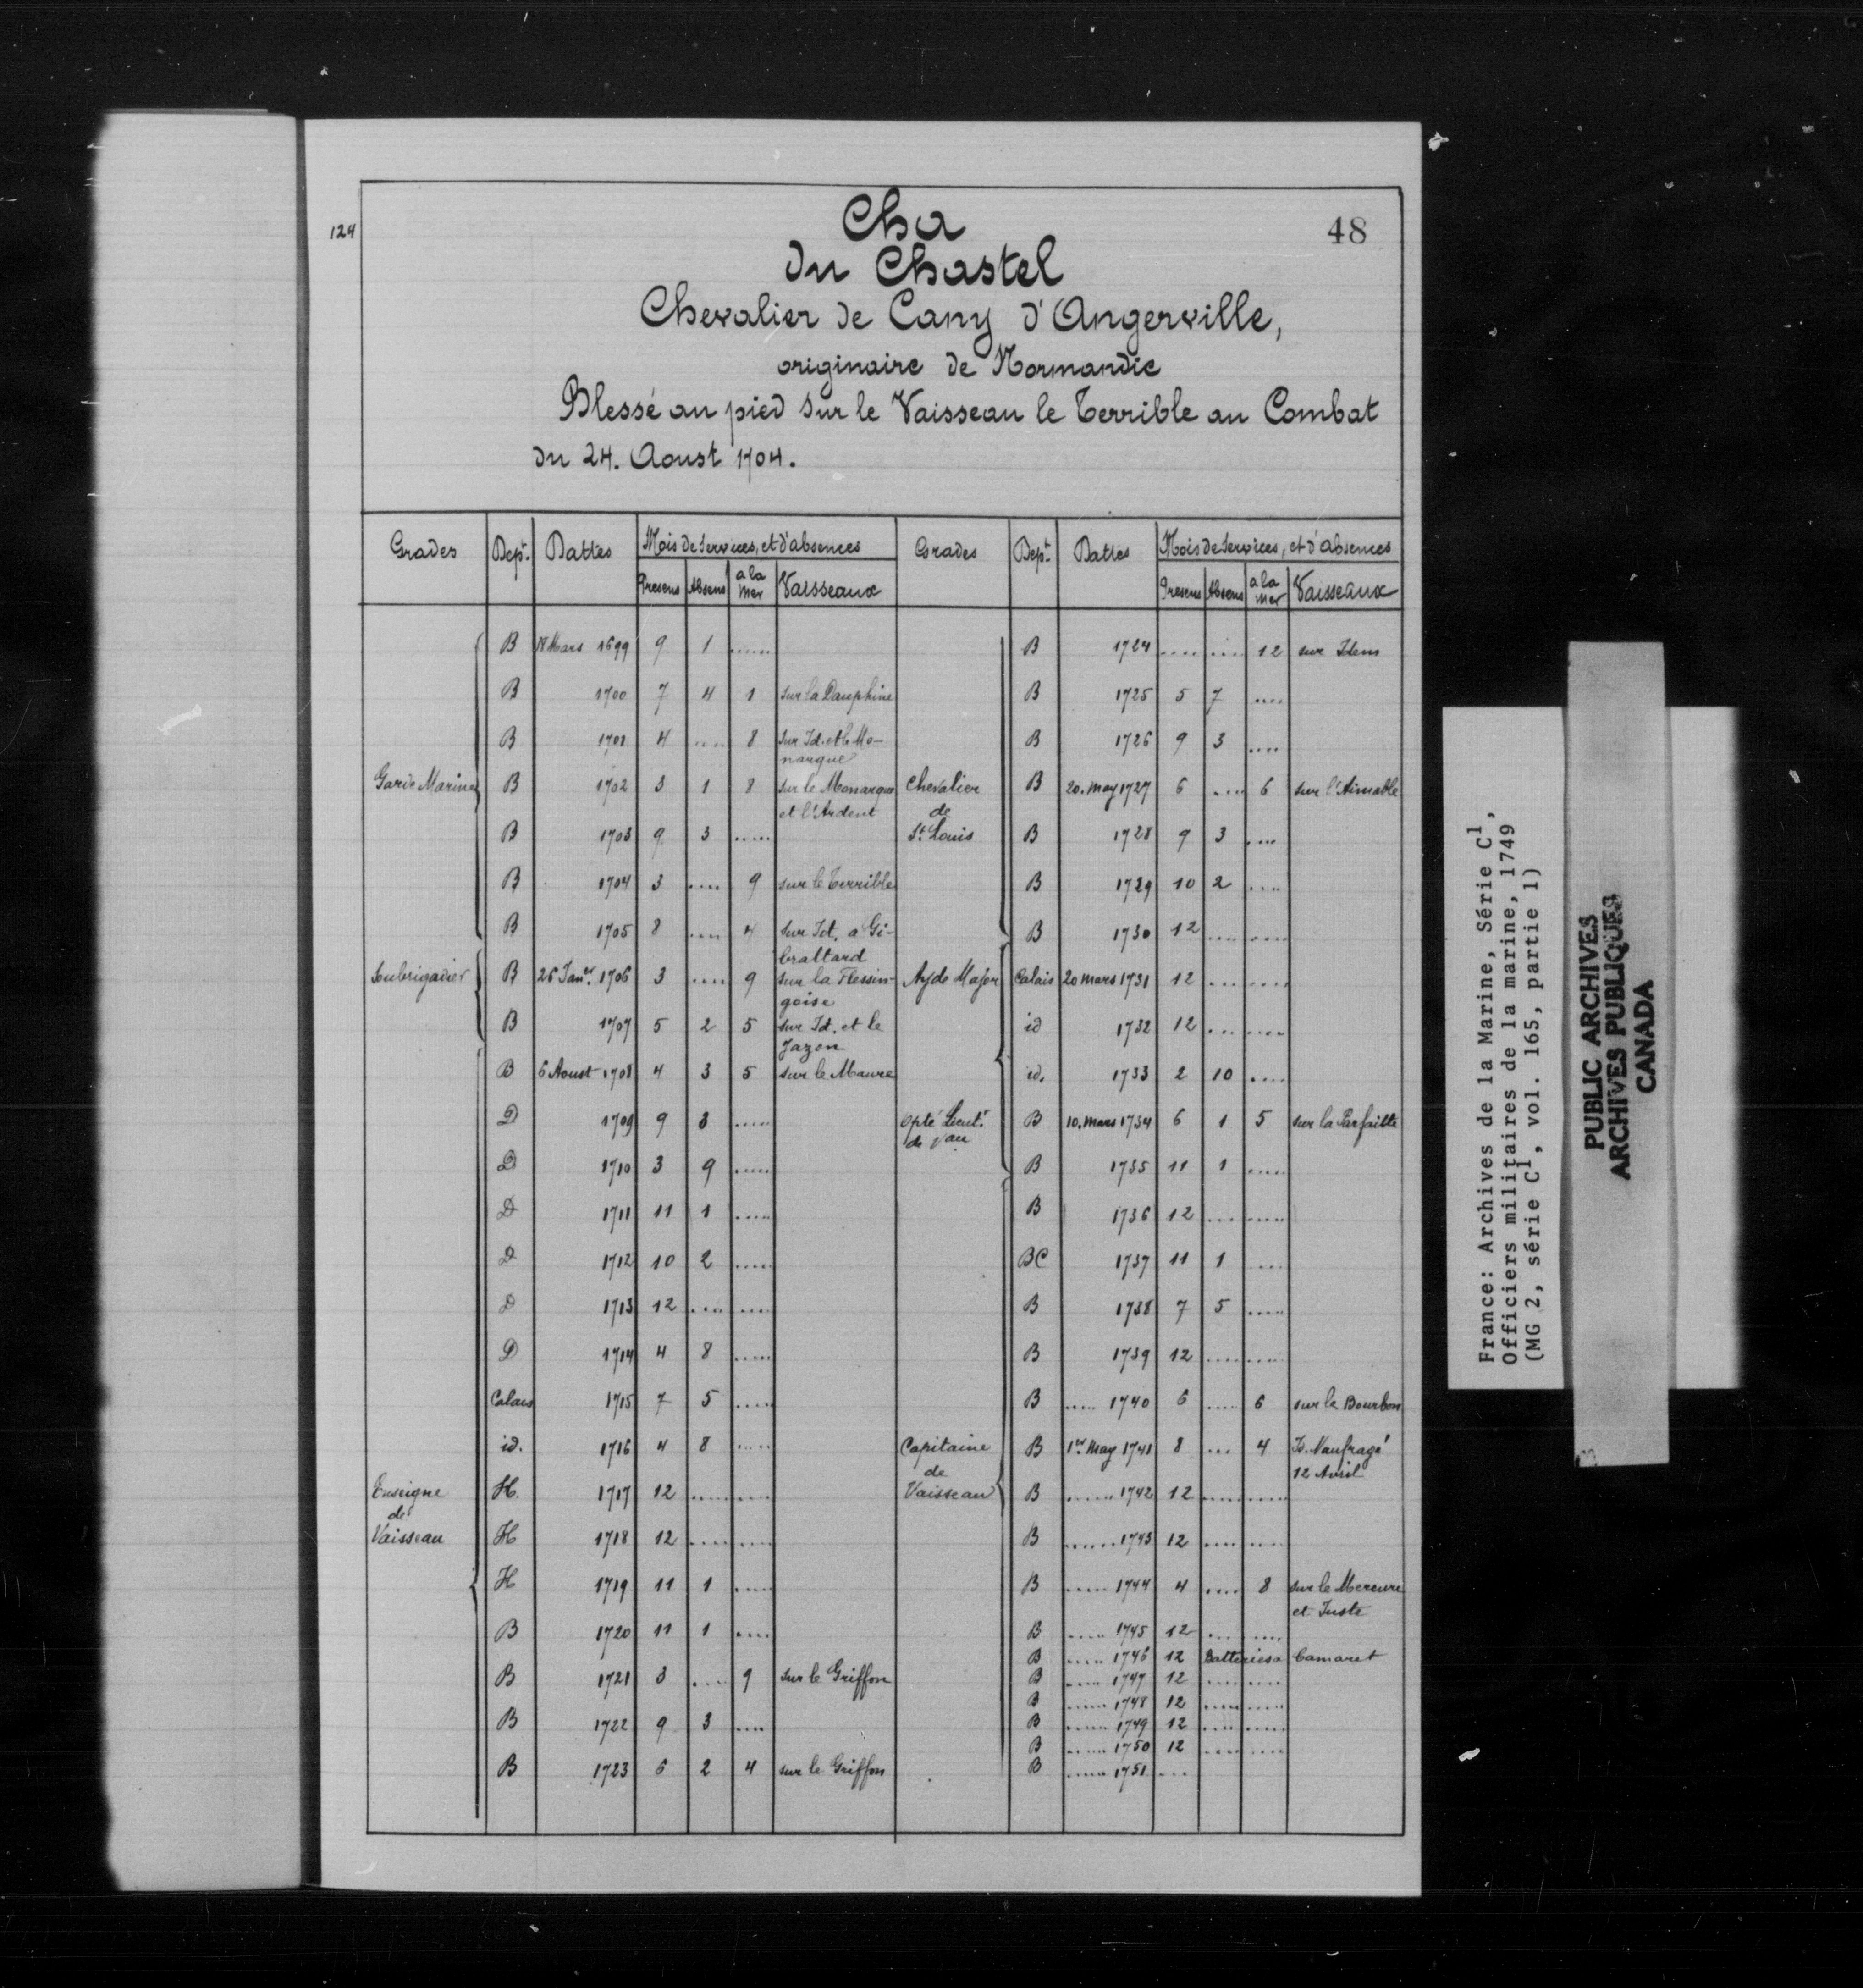 124
48
Cha
du Chastel
Chevalier de Cany d'Angerville,
originaire de Normandie
Blessé au pied sur le Vaisseau le Terrible au Combat
du 24. Aoust 1704.
Grades Dept. Dattes Mois de Services, et d'absences
Presens Absens a la mer Vaisseaux
B Mars 1699 9 1 ......
B 1700 7 4 1 sur la Dauphine
B 1701 4 .... 8 sur Id. et le Mo-
narque
Garde Marine B 1702 3 1 8 sur le Monarque
et l'Ardent
B 1703 9 3 .....
B 1704 3 .... 9 sur le Terrible
B 1705 8 .... 4 sur Id. a Gi-
braltard
Soubrigadier B 26 Janer. 1706 3 .... 9 sur la Flessin-
goise
B 1707 5 2 5 sur Id. et le
Jazon
B 6 Aoust 1708 4 3 5 sur le Maure
D 1709 9 3 .....
D 1710 3 9 .....
D 1711 11 1 .....
D 1712 10 2 .....
D 1713 12 .... ....
D 1714 4 8 .....
Calais 1715 7 5 .....
id. 1716 4 8 .....
Enseigne H. 1717 12 ..... ....
de
Vaisseau H 1718 12 .... ....
H 1719 11 1 .....
B 1720 11 1 ....
B 1721 3 .... 9 sur le Griffon
B 1722 9 3 ....
B 1723 6 2 4 sur le Griffon
Grades Dept. Dattes Mois de Services, et d'absences
Presens Absens a la mer Vaisseaux
B 1724 .... .... 12 sur Idem
B 1725 5 7 ....
B 1726 9 3 ....
Chevalier B 20. May 1727 6 .... 6 sur l'Aimable
de
St. Louis B 1728 9 3 ....
B 1729 10 2 ....
B 1730 12 .... ....
Ayde Major Calais 20 mars 1731 12 .... ....
id 1732 12 .... ....
id. 1733 2 10 ....
Opté Lieut. B 10. mars 1734 6 1 5 sur la Parfaitte
de Vau.
B 1735 11 1 ....
B 1736 12 .... ....
BC 1737 11 1 ....
B 1738 7 5 ....
B 1739 12 .... ....
B ..... 1740 6 ..... 6 sur le Bourbon
Capitaine B 1er. May 1741 8 ... 4 Id. Naufragé
12 Avril
de
Vaisseau B ....... 1742 12 ..... .....
B ....... 1743 12 .... ....
B ..... 1744 4 .... 8 sur le Mercure
et Juste
B ..... 1745 12 .... ....
B ..... 1746 12 Batteries a Camaret
B ..... 1747 12 ..... ....
B ...... 1748 12 ..... .....
B ...... 1749 12 ..... .....
B ...... 1750 12 ..... ....
B ...... 1751 ...
France: Archives de la Marine, Série C1,
Officiers militaires de la marine, 1749
(MG 2, série C1, vol. 165, partie 1)
PUBLIC ARCHIVES
ARCHIVES PUBLIQUES
CANADA